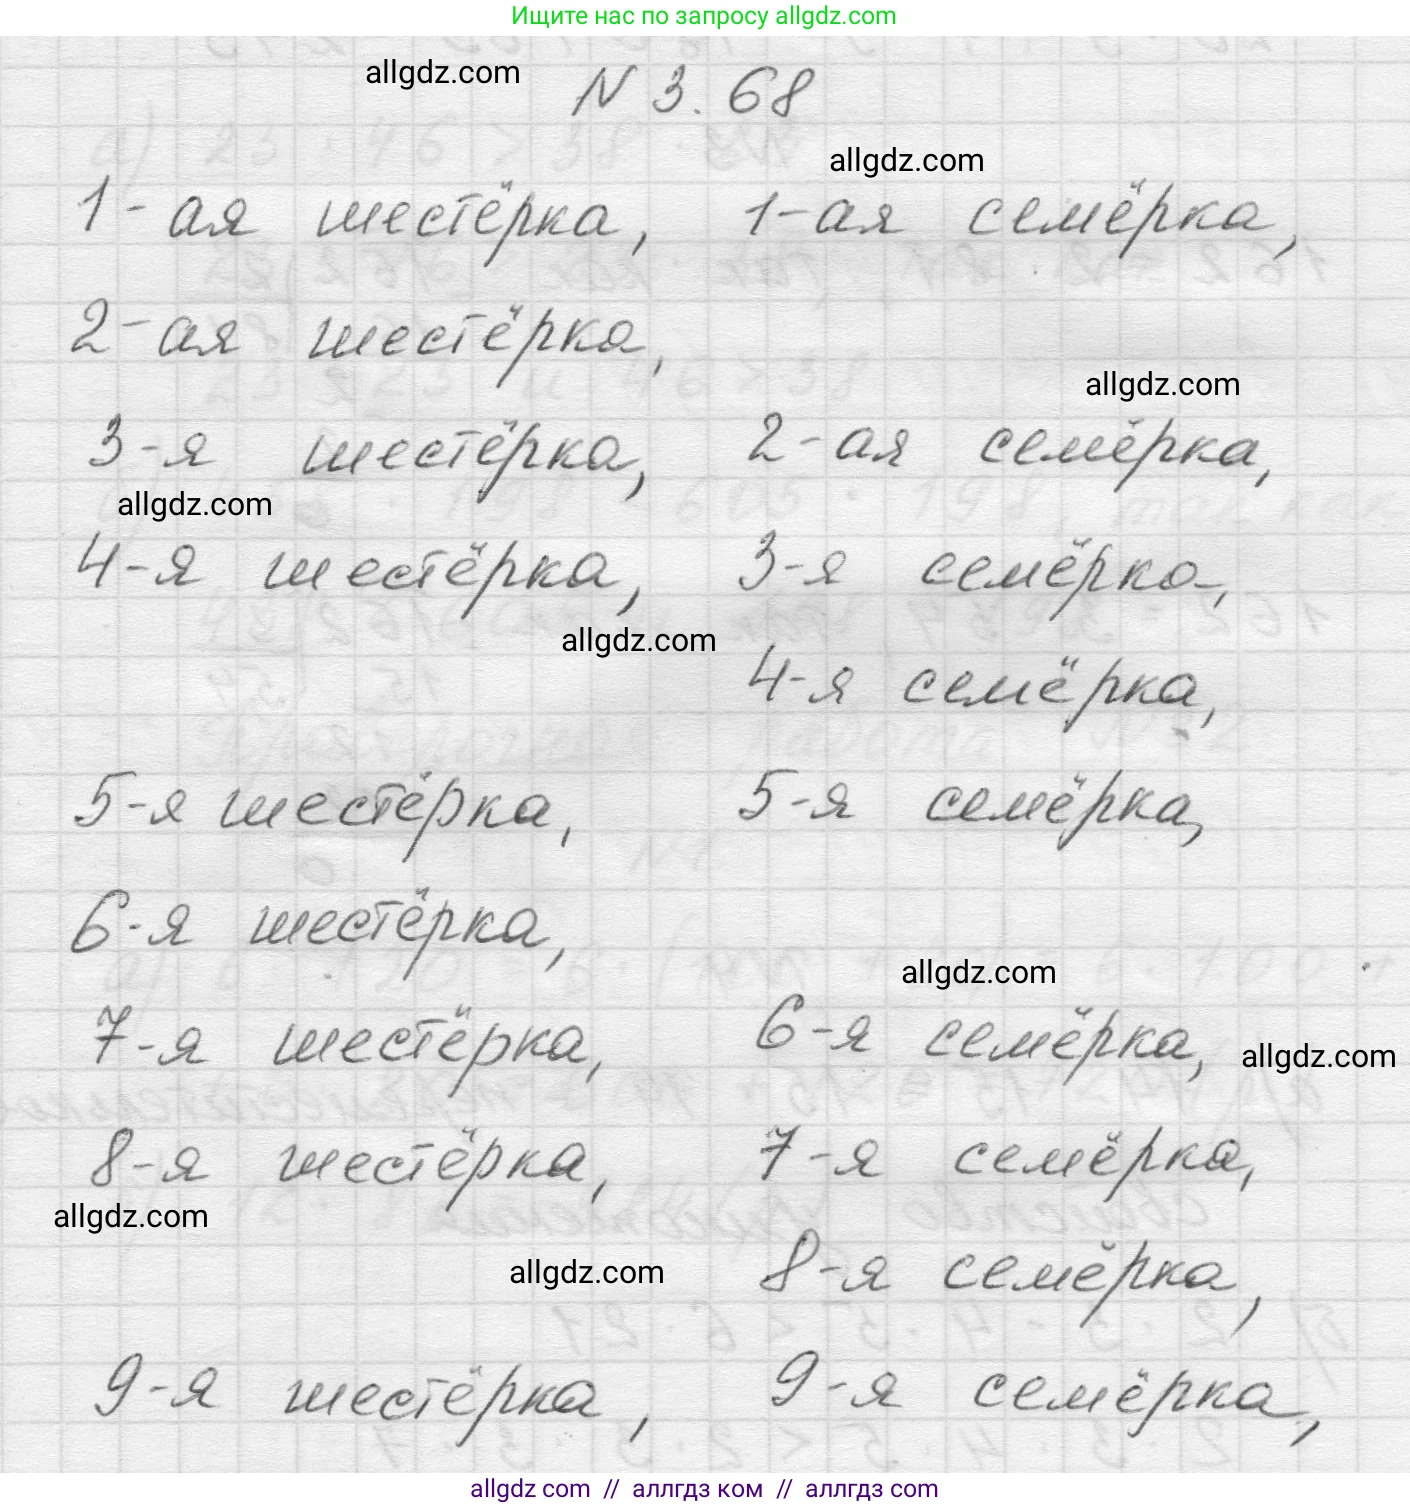 Ищите нас по запросу allgdz.com
allgdz.com
N 3.68
allgdz.com
1-ая шестёрка, 1-ая семёрка,
2-ая шестёрка,
allgdz.com
3-я шестёрка, 2-ая семёрка,
allgdz.com
4-я шестёрка, 3-я семёрка,
allgdz.com
4-я семёрка,
5-я шестёрка, 5-я семёрка,
6-я шестёрка,
allgdz.com
7-я шестёрка, 6-я семёрка,
allgdz.com
8-я шестёрка, 7-я семёрка,
allgdz.com
allgdz.com
8-я семёрка,
9-я шестёрка, 9-я семёрка,
allgdz.com // аллгдз ком // аллгдз.com